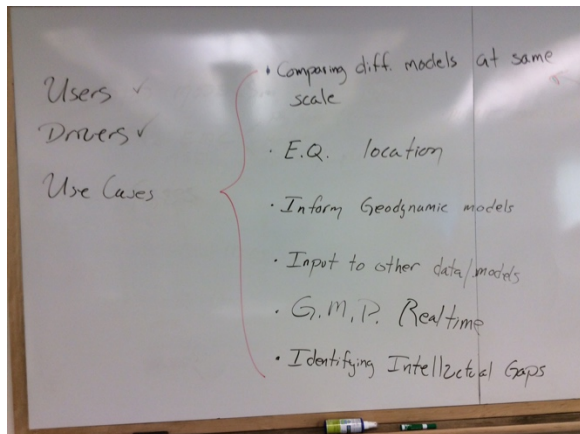 Users ✓
Drivers ✓
Use Cases
• Comparing diff. models at same
scale
• E.Q. location
• Inform Geodynamic models
• Input to other data/models
• G.M.P. Realtime
• Identifying Intellectual Gaps